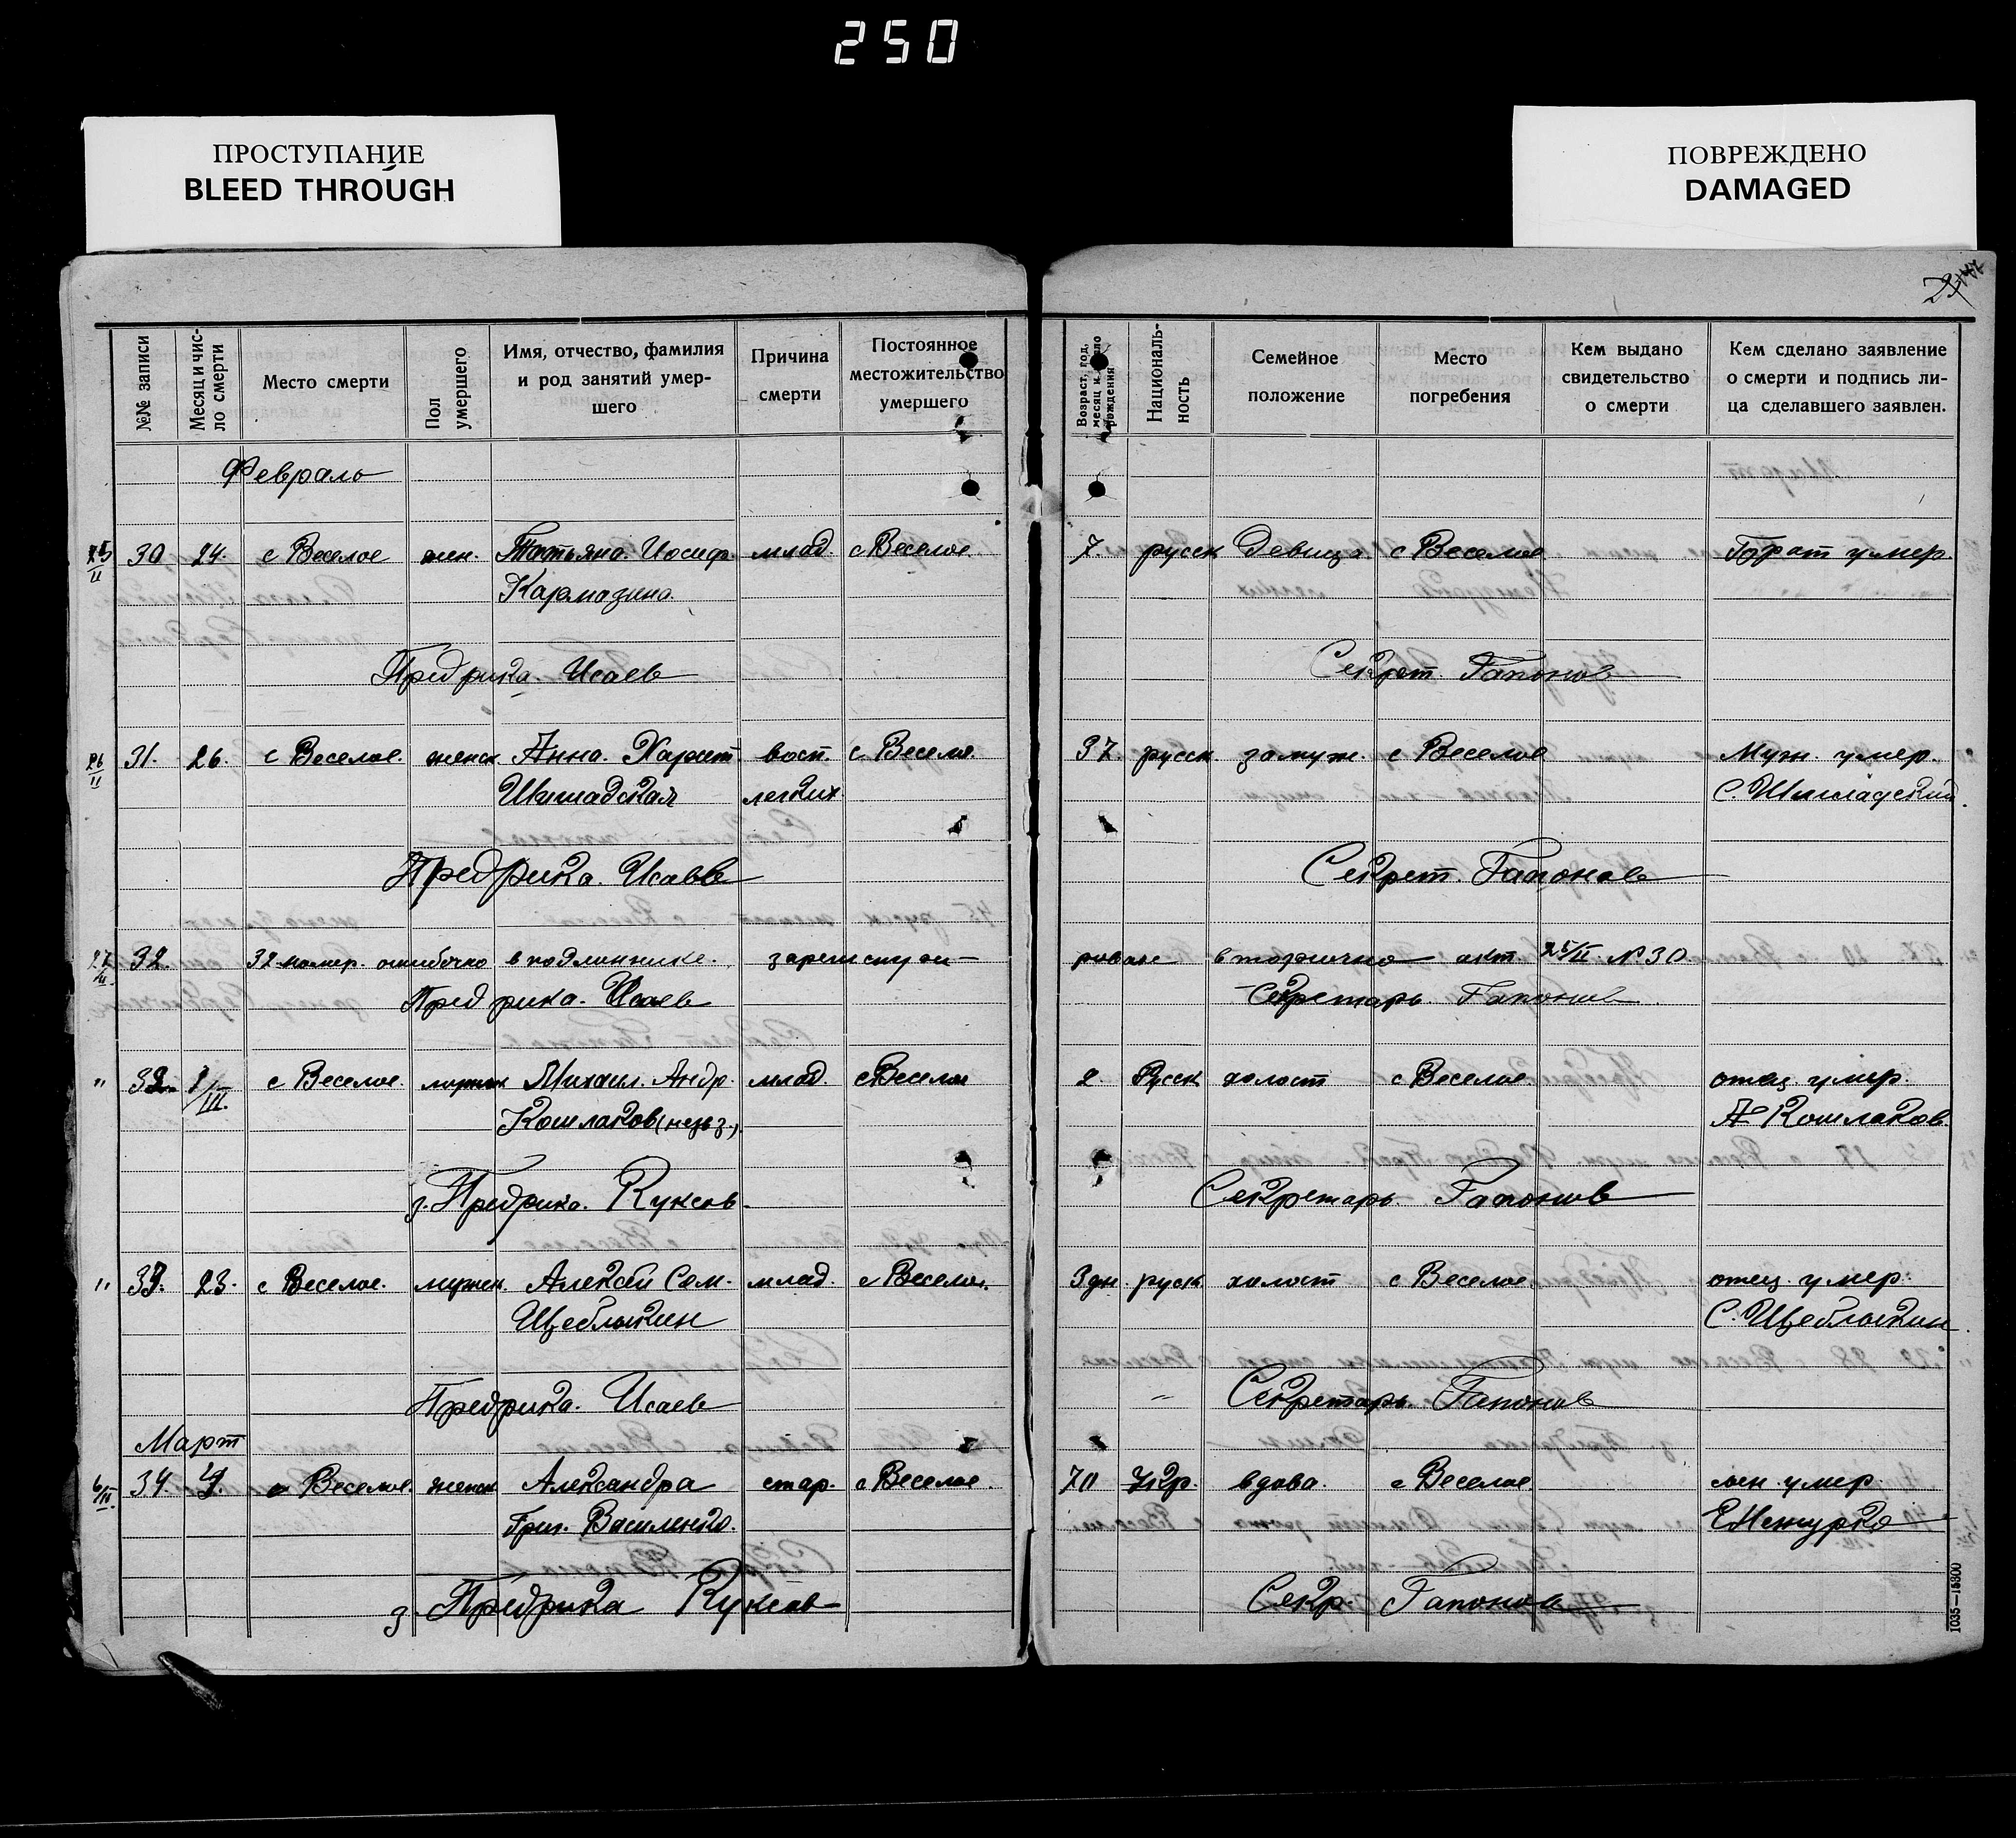 250
ПРОСТУПАНИЕ
BLEED THROUGH
ПОВРЕЖДЕНО
DAMAGED
№№ записи
Месяц и чис-
ло смерти
Место смерти
Пол
умершего
Имя, отчество, фамилия
и род занятий умер-
шего
Причина
смерти
Постоянное
местожительство
умершего
Возраст, год,
месяц и число
рождения
Националь-
ность
Семейное
положение
Место
погребения
Кем выдано
свидетельство
о смерти
Кем сделано заявление
о смерти и подпись ли-
ца сделавшего заявлен.
Февраль
25/II 30 24. с Веселое жен. Татьяна Иосиф. млад. с Веселое 7 русск девица с Веселое Брат умер.
Кармазина
Предрика. Исаев Секрет. Гапонов
26/II 31. 26. с Веселое. женск Анна. Харит. восп. с Веселое. 37. русск. замуж. с Веселое Муж. умер.
легких.
Предрика. Исаев Секрет. Гапонов
27/II 32. 32 номер. ошибочно в подлиннике. зарегистри- рован вторично акт 25/II. №30
Предрика. Исаев Секретарь. Гапонов
" 32 1/III. с Веселое. мужск Михаил. Андр. млад. с Веселое 2. Русск холост с Веселое. отец. умер.
Кошлаков А Кошлаков.
з. Предрика. Куксов. Секретарь. Гапонов
" 33. 23. с Веселое. мужск. Алексей Сем. млад. с Веселое. 3 дн. русск холост с Веселое отец. умер.
Щеблыкин С. Щеблыкин.
Предрика. Исаев Секретарь. Гапонов
Март
6/III. 34. с Веселое. женск Александра стар. с Веселое. 70 Укр. вдова. с Веселое. сын. умер.
Григ. Василенко.
з. Предрика Куксов Секр. Гапонов
1035—15300